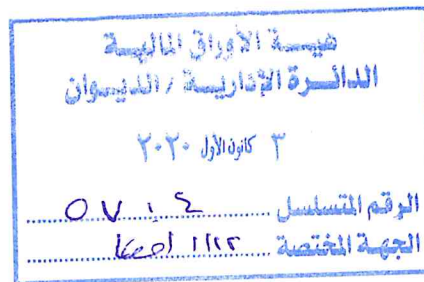 هيئة الأوراق المالية
الدائرة الإدارية / الديوان
٣ كانون الأول ٢٠٢٠
الرقم المتسلسل ٥٧٠٤
الجهة المختصة